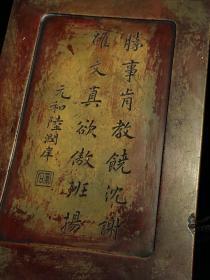 勝事肯教饒沈謝
雄文真欲傲班揚
元和陸潤庠